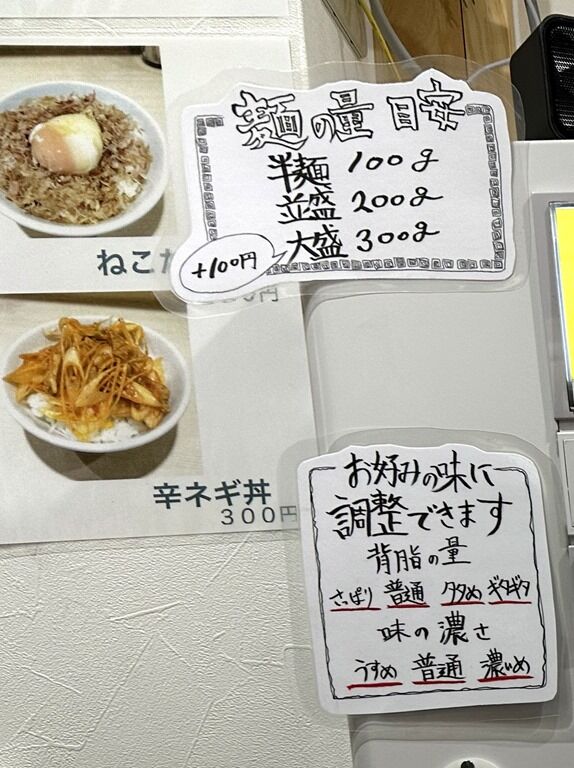 麺の量 目安
半麺 100g
並盛 200g
大盛 300g
+100円
ねこ
辛ネギ丼
300円
お好みの味に
調整できます
背脂の量
さっぱり 普通 タタめ ギタギタ
味の濃さ
うすめ 普通 濃いめ